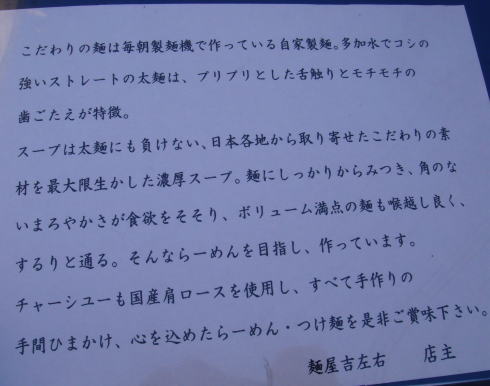 こだわりの麺は毎朝製麺機で作っている自家製麺。多加水でコシの
強いストレートの太麺は、プリプリとした舌触りとモチモチの
歯ごたえが特徴。
スープは太麺にも負けない、日本各地から取り寄せたこだわりの素
材を最大限生かした濃厚スープ。麺にしっかりからみつき、角のな
いまろやかさが食欲をそそり、ボリューム満点の麺も喉越し良く、
するりと通る。そんならーめんを目指し、作っています。
チャーシューも国産肩ロースを使用し、すべて手作りの
手間ひまかけ、心を込めたらーめん・つけ麺を是非ご賞味下さい。
麺屋吉左右　店主